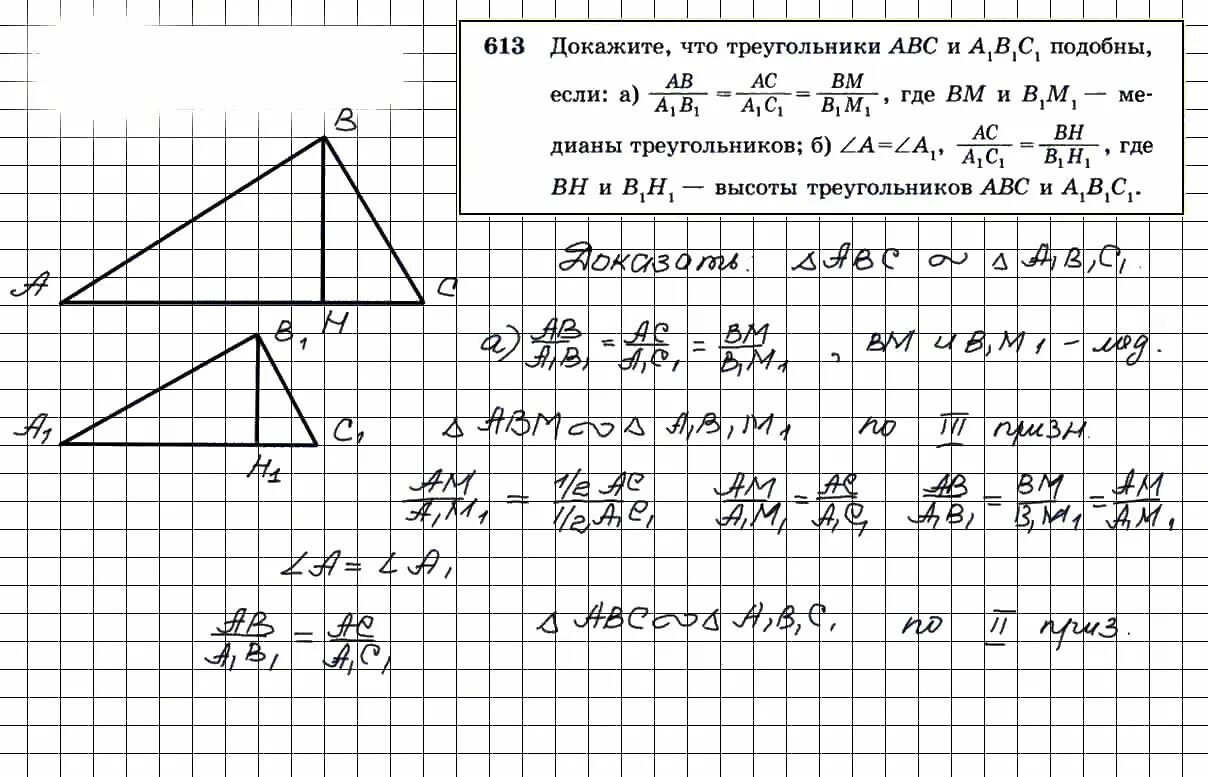 613 Докажите, что треугольники ABC и A₁B₁C₁ подобны,
если: а) AB/A₁B₁ = AC/A₁C₁ = BM/B₁M₁, где BM и B₁M₁ — ме-
дианы треугольников; б) ∠A=∠A₁, AC/A₁C₁ = BH/B₁H₁, где
BH и B₁H₁ — высоты треугольников ABC и A₁B₁C₁.
B
A
C
H
B₁
A₁
C₁
H₁
Доказать: △ABC ∾ △A₁B₁C₁.
а) AB/A₁B₁ = AC/A₁C₁ = BM/B₁M₁, BM и B₁M₁ – мед.
△ABM ∾ △A₁B₁M₁ по III призн.
AM/A₁M₁ = 1/2 AC / 1/2 A₁C₁ AM/A₁M₁ = AC/A₁C₁ AB/A₁B₁ = BM/B₁M₁ = AM/A₁M₁
∠A = ∠A₁
AB/A₁B₁ = AC/A₁C₁ △ABC ∾ △A₁B₁C₁ по II приз.